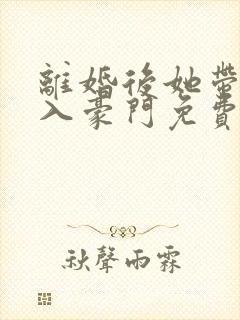 離婚後她帶
入豪門免費
秋聲雨霖